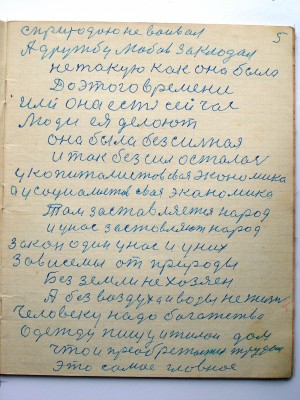 с природою не воивал
5
А дружбу Любов Закладал
не такую как она была
До этого времени
Или она есть сейчас
Люди ея делоют
она была безсилная
и так без сил осталас
у копиталистов свая экономика
а у социалистов свая экэномика
Там заставляется народ
и у нас заставляют народ
Закон один у нас и у них
Зависемы от природы
Без земли не хозяен
А без воздуха и воды не жизн
Человеку надо богатство
Одежды пищу и жилой дом
что и преобретается трудом
это самое главное